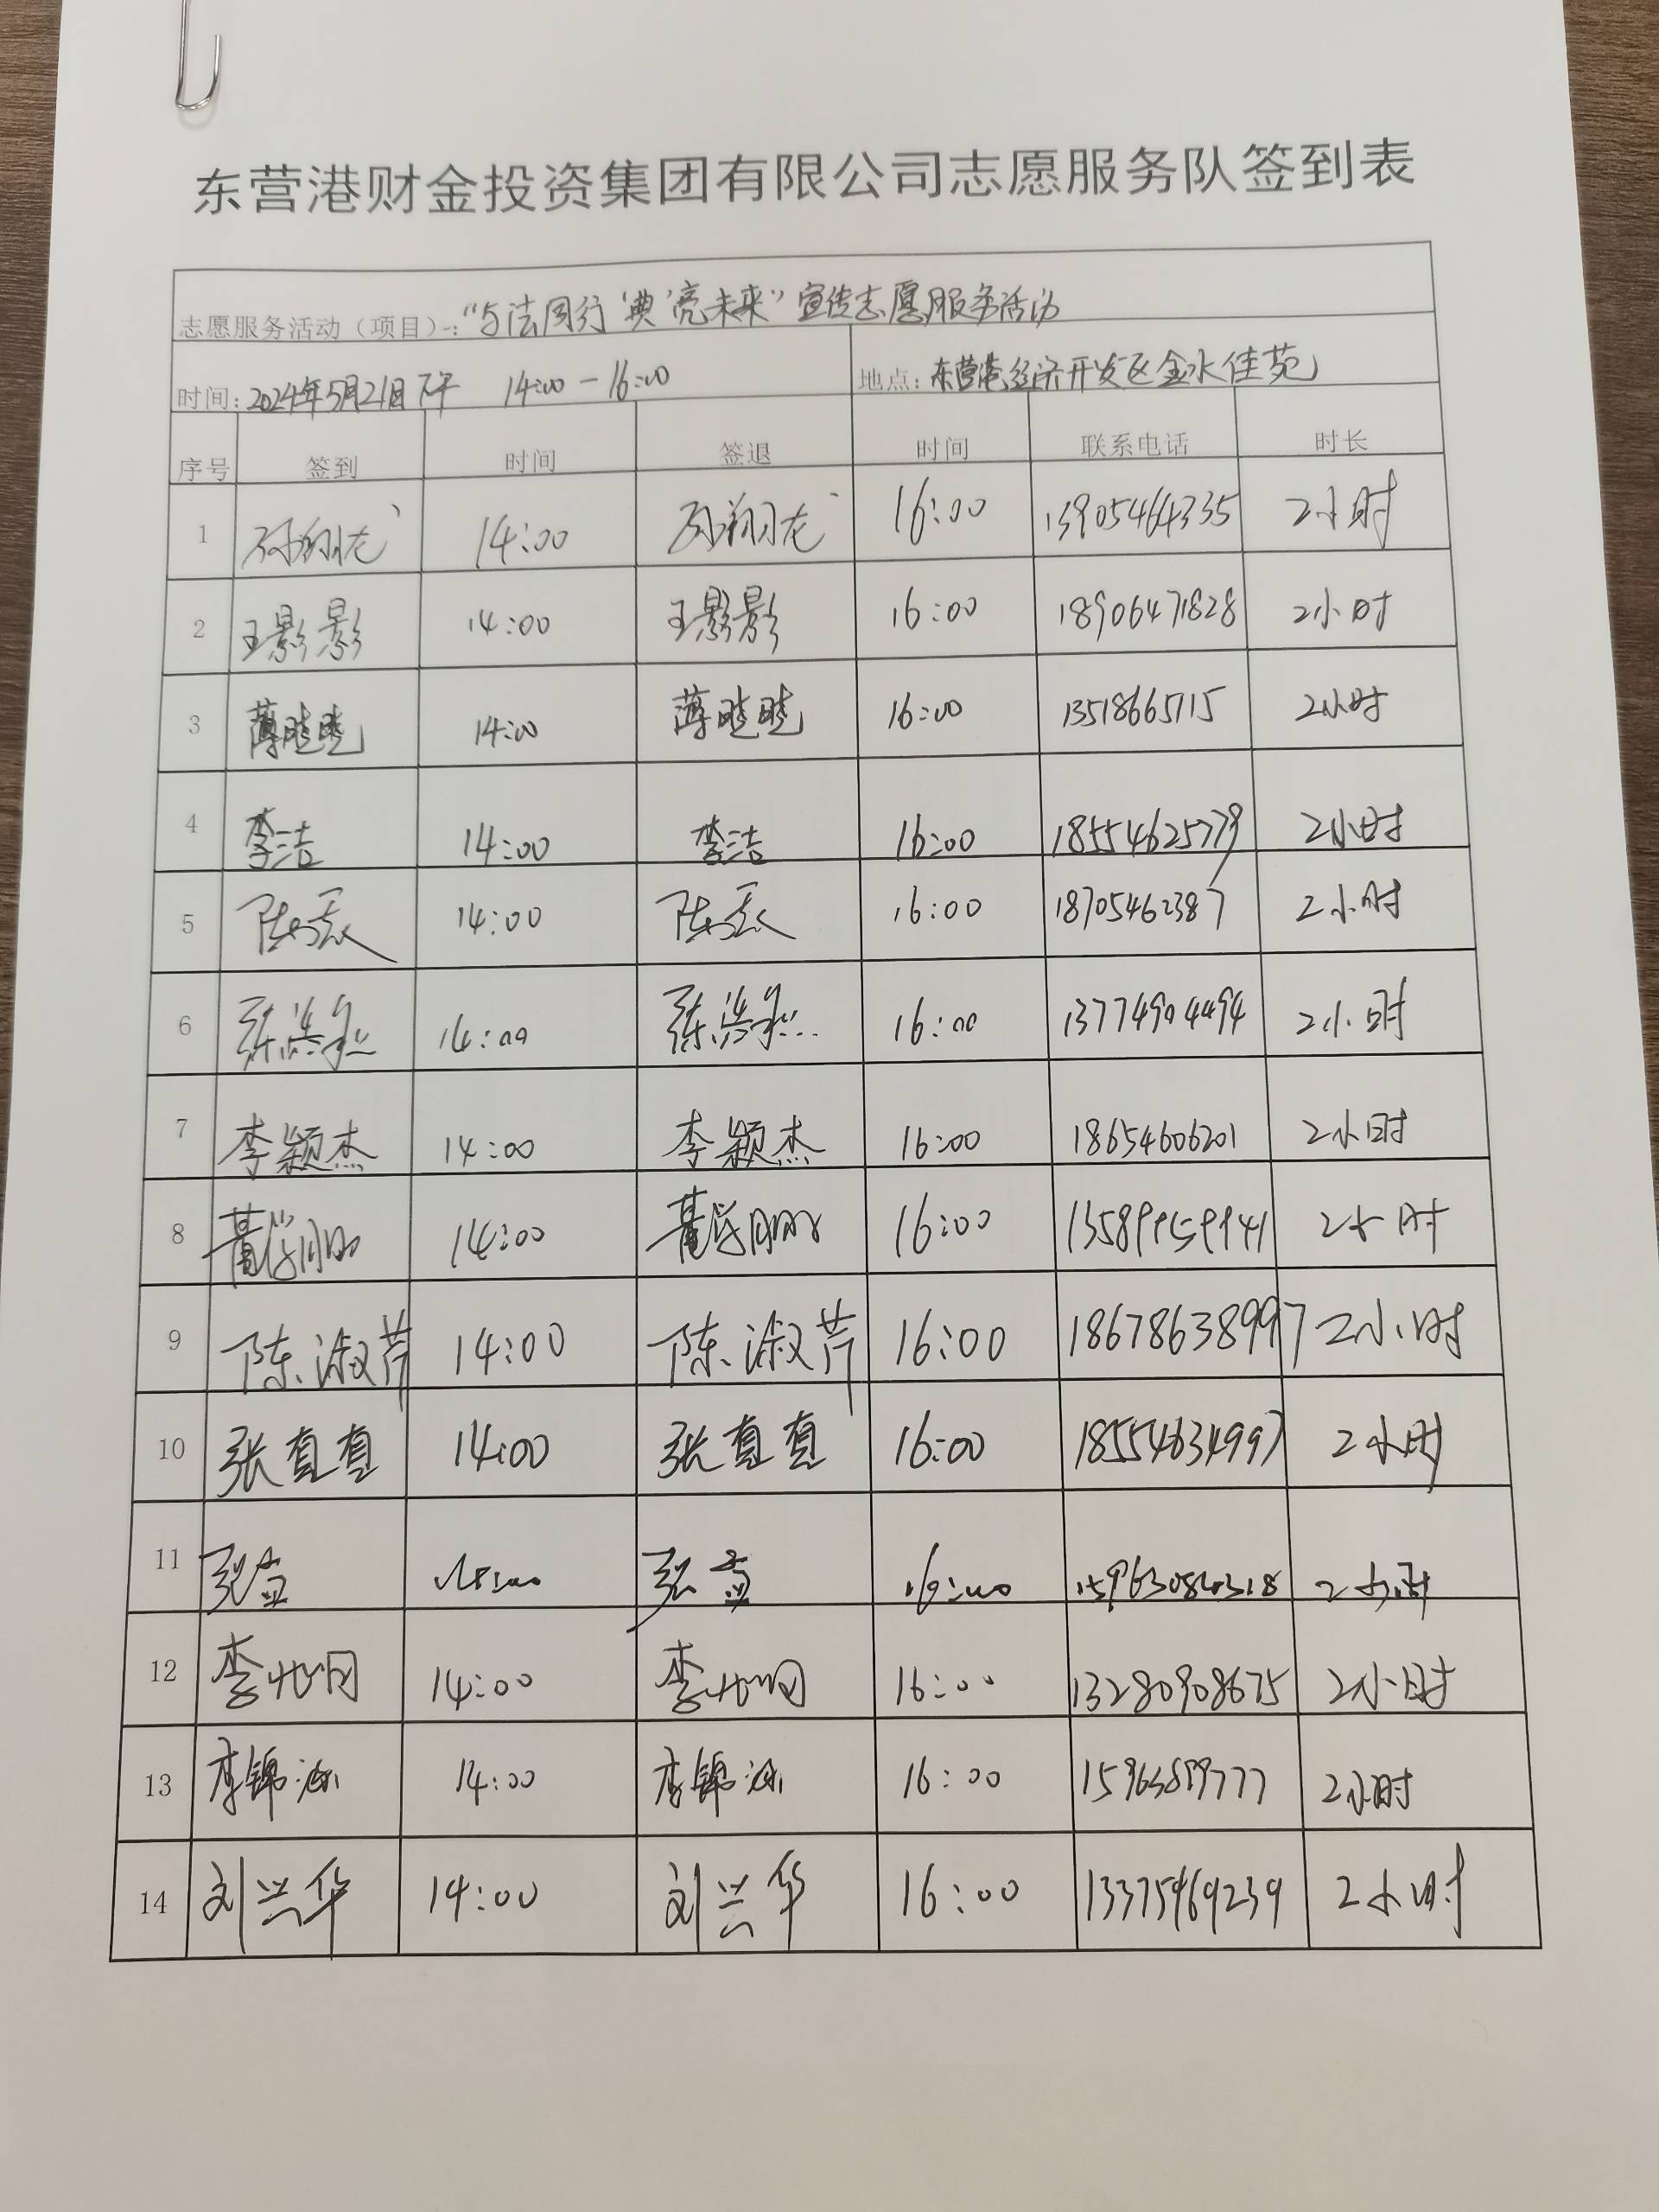 东营港财金投资集团有限公司志愿服务队签到表
志愿服务活动（项目）：“与法同行 '典'亮未来”宣传志愿服务活动
时间：2024年5月21日下午 14:00-16:00 地点：东营港经济开发区金水佳苑
序号 签到 时间 签退 时间 联系电话 时长
1 孙翔龙 14:00 孙翔龙 16:00 13905464335 2小时
2 王影影 14:00 王影影 16:00 18906471828 2小时
3 薄晓晓 14:00 薄晓晓 16:00 13518665115 2小时
4 李洁 14:00 李洁 16:00 18554625779 2小时
5 陈磊 14:00 陈磊 16:00 18705462387 2小时
6 张浩 14:00 张浩 16:00 13774904494 2小时
7 李颖杰 14:00 李颖杰 16:00 18654606201 2小时
8 董学 14:00 董学 16:00 2小时
9 陈淑芹 14:00 陈淑芹 16:00 18678638997 2小时
10 张真真 14:00 张真真 16:00 18554634997 2小时
11 张 张 16:00 2小时
12 李 14:00 李 16:00 13280908675 2小时
13 李锦 14:00 李锦 16:00 15963899777 2小时
14 刘兴华 14:00 刘兴华 16:00 13375469239 2小时